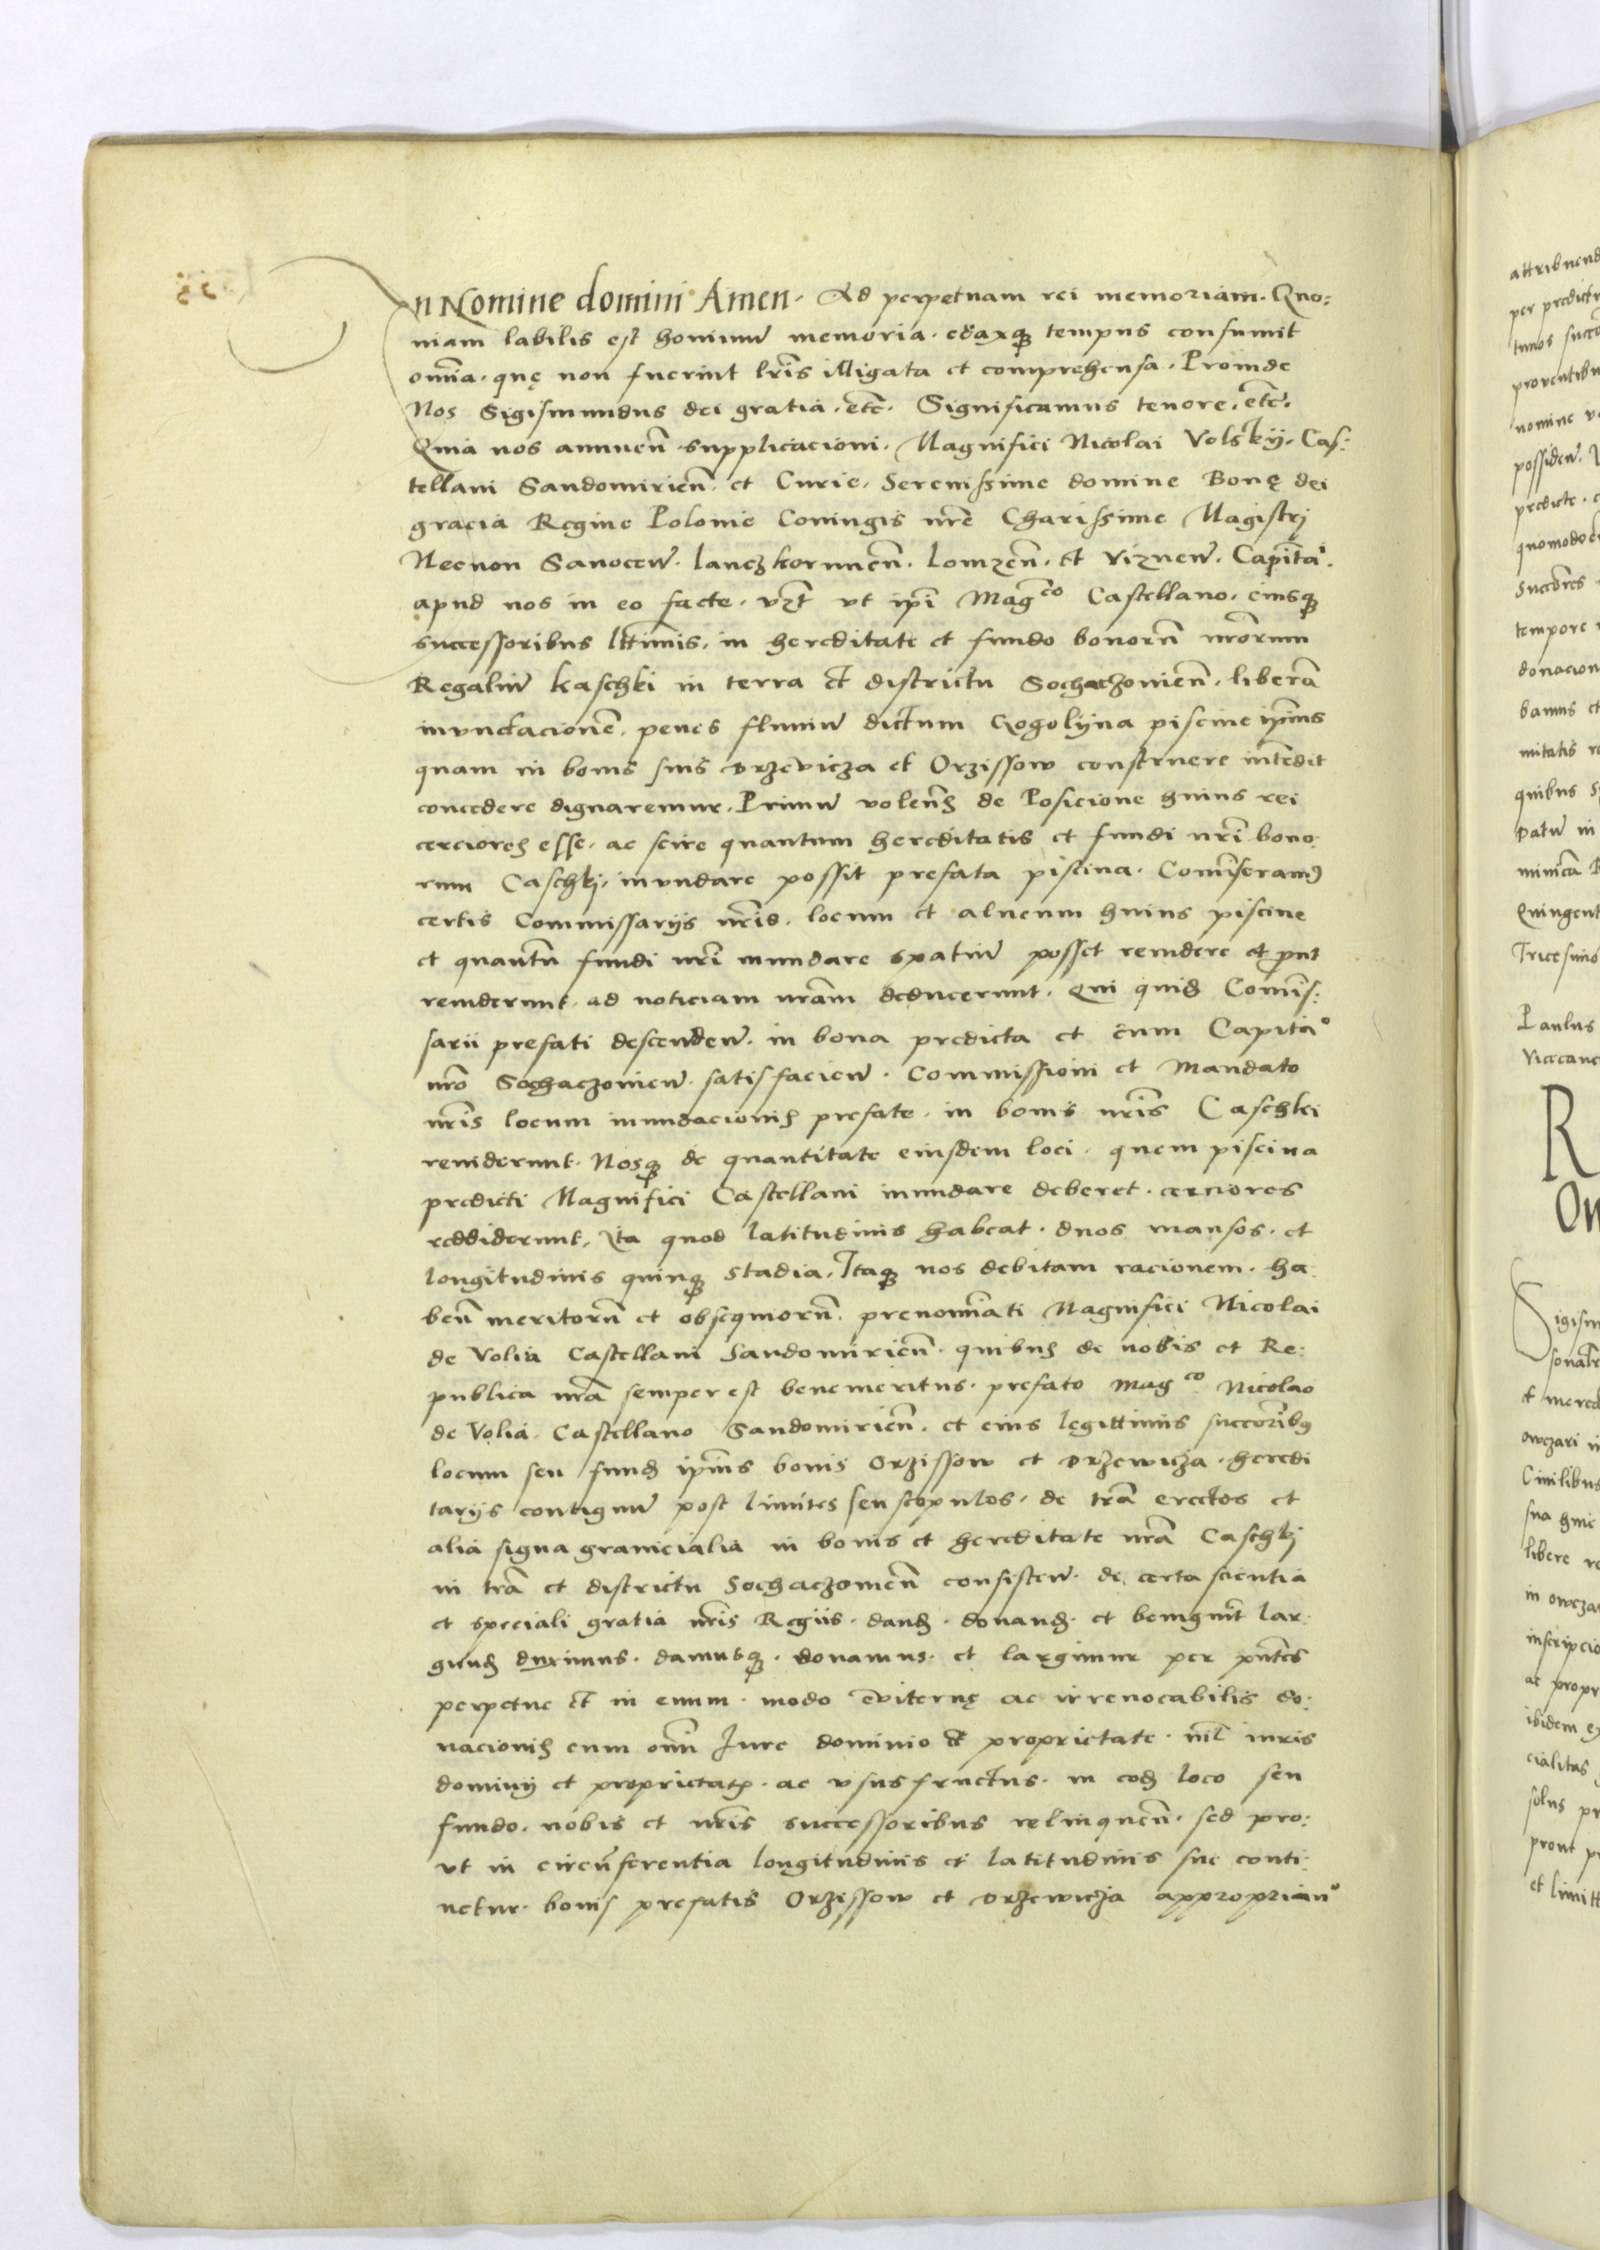 In Nomine domini Amen. Ad perpetuam rei memoriam. Quo:
niam labilis est hominū memoria. edaxq̨ tempus consumit
om̄ia. quę non fuerint lr̄is illigata et comprehensa. Proinde
Nos Sigismundus dei gratia. etc̄. Significamus tenore. etc̄.
Quia nos annuen̄ supplicacioni. Magnifici Nicolai Volskÿ. Cas:
tellani Sandomirien̄. et Curie. Serenissime domine Bonę dei
gracia Regine Polonie Coniugis nr̄e Charissime Magistrj
Necnon Sanocen̄. lanczkorunen̄. Lomzen̄. et Viznen̄. Capita̅.
apud nos in eo facte. vz̄t vt ip̄i Mag^co Castellano. eiusq̨
successoribus ltt̄imis. in hereditate et fundo bonorū nr̄orum
Regaliū kaschki in terra et districtu Sochaczouien̄. liberā
invndacionē. penes fluuiū dictum Rogolÿna piscine ip̄ius
quam in bonis suis Drzevicza et Orzissow construere intēdit
concedere dignaremur. Primū volen̄ de Posicione huius rei
cerciores esse. ac scire quantum hereditatis et fundi nr̄i bono
rum Caschkj. invndare possit prefata piscina. Comīseramꝰ
certis Commissarijs nr̄is. locum et alueum huius piscine
et quantū fundi nr̄i inundare spatiū posset reuidere et prout
reuiderunt. ad noticiam nr̄am deducerunt. Qui quidē Comīs:
sarii prefati descenden̄. in bona predicta et cum Capita̅
nr̄o Sochaczouien̄. satisfacien̄. Commissioni et Mandato
nr̄is locum inundacionis prefate. in bonis nr̄is Caschki
reuiderunt. Nosq̨ de quantitate eiusdem loci. quem piscina
predicti Magnifici Castellani inundare deberet. cerciores
reddiderunt. Ita quod latitudinis habeat. duos mansos. et
longitudinis quinq̨ stadia. Itaq̨ nos debitam racionem. ha
ben̄ meritorū et obsequiorū. prenomīati Magnifici Nicolai
de Volia Castellani Sandomirien̄. quibus de nobis et Re:
publica nr̄a semper est benemeritus. prefato Mag^co Nicolao
de Volia. Castellano Sandomirien̄. et eius legittimis succorībꝰ
locum seu fundū ip̄ius bonis Orzissow et Drzewicza. heredi
tarijs contiguū post limites seu scopulos. de tr̄a erectos et
alia signa granicialia in bonis et hereditate nr̄a Caschkj
in tr̄a et districtu Sochaczouien̄ consisten̄. de certa scientia
et speciali gratia nr̄is Regiis. dand̄. donand̄. et benignit̄ lar
giend̄ duximus. damusq̨. donamus. et largimur per pn̄tes
perpetue et in euum. modo ēviternę ac irreuocabilis do:
nacionis cum om̄i Jure dominio et proprietate. nīl iuris
dominij et proprietatis. ac vsusfructus. in eod̄ loco seu
fundo. nobis et nr̄is successoribus relinquen̄. sed pro:
vt in circūferentia longitudinis et latitudinis sue conti
netur. bonis prefatis Orzissow et Drzewicza approprian̄